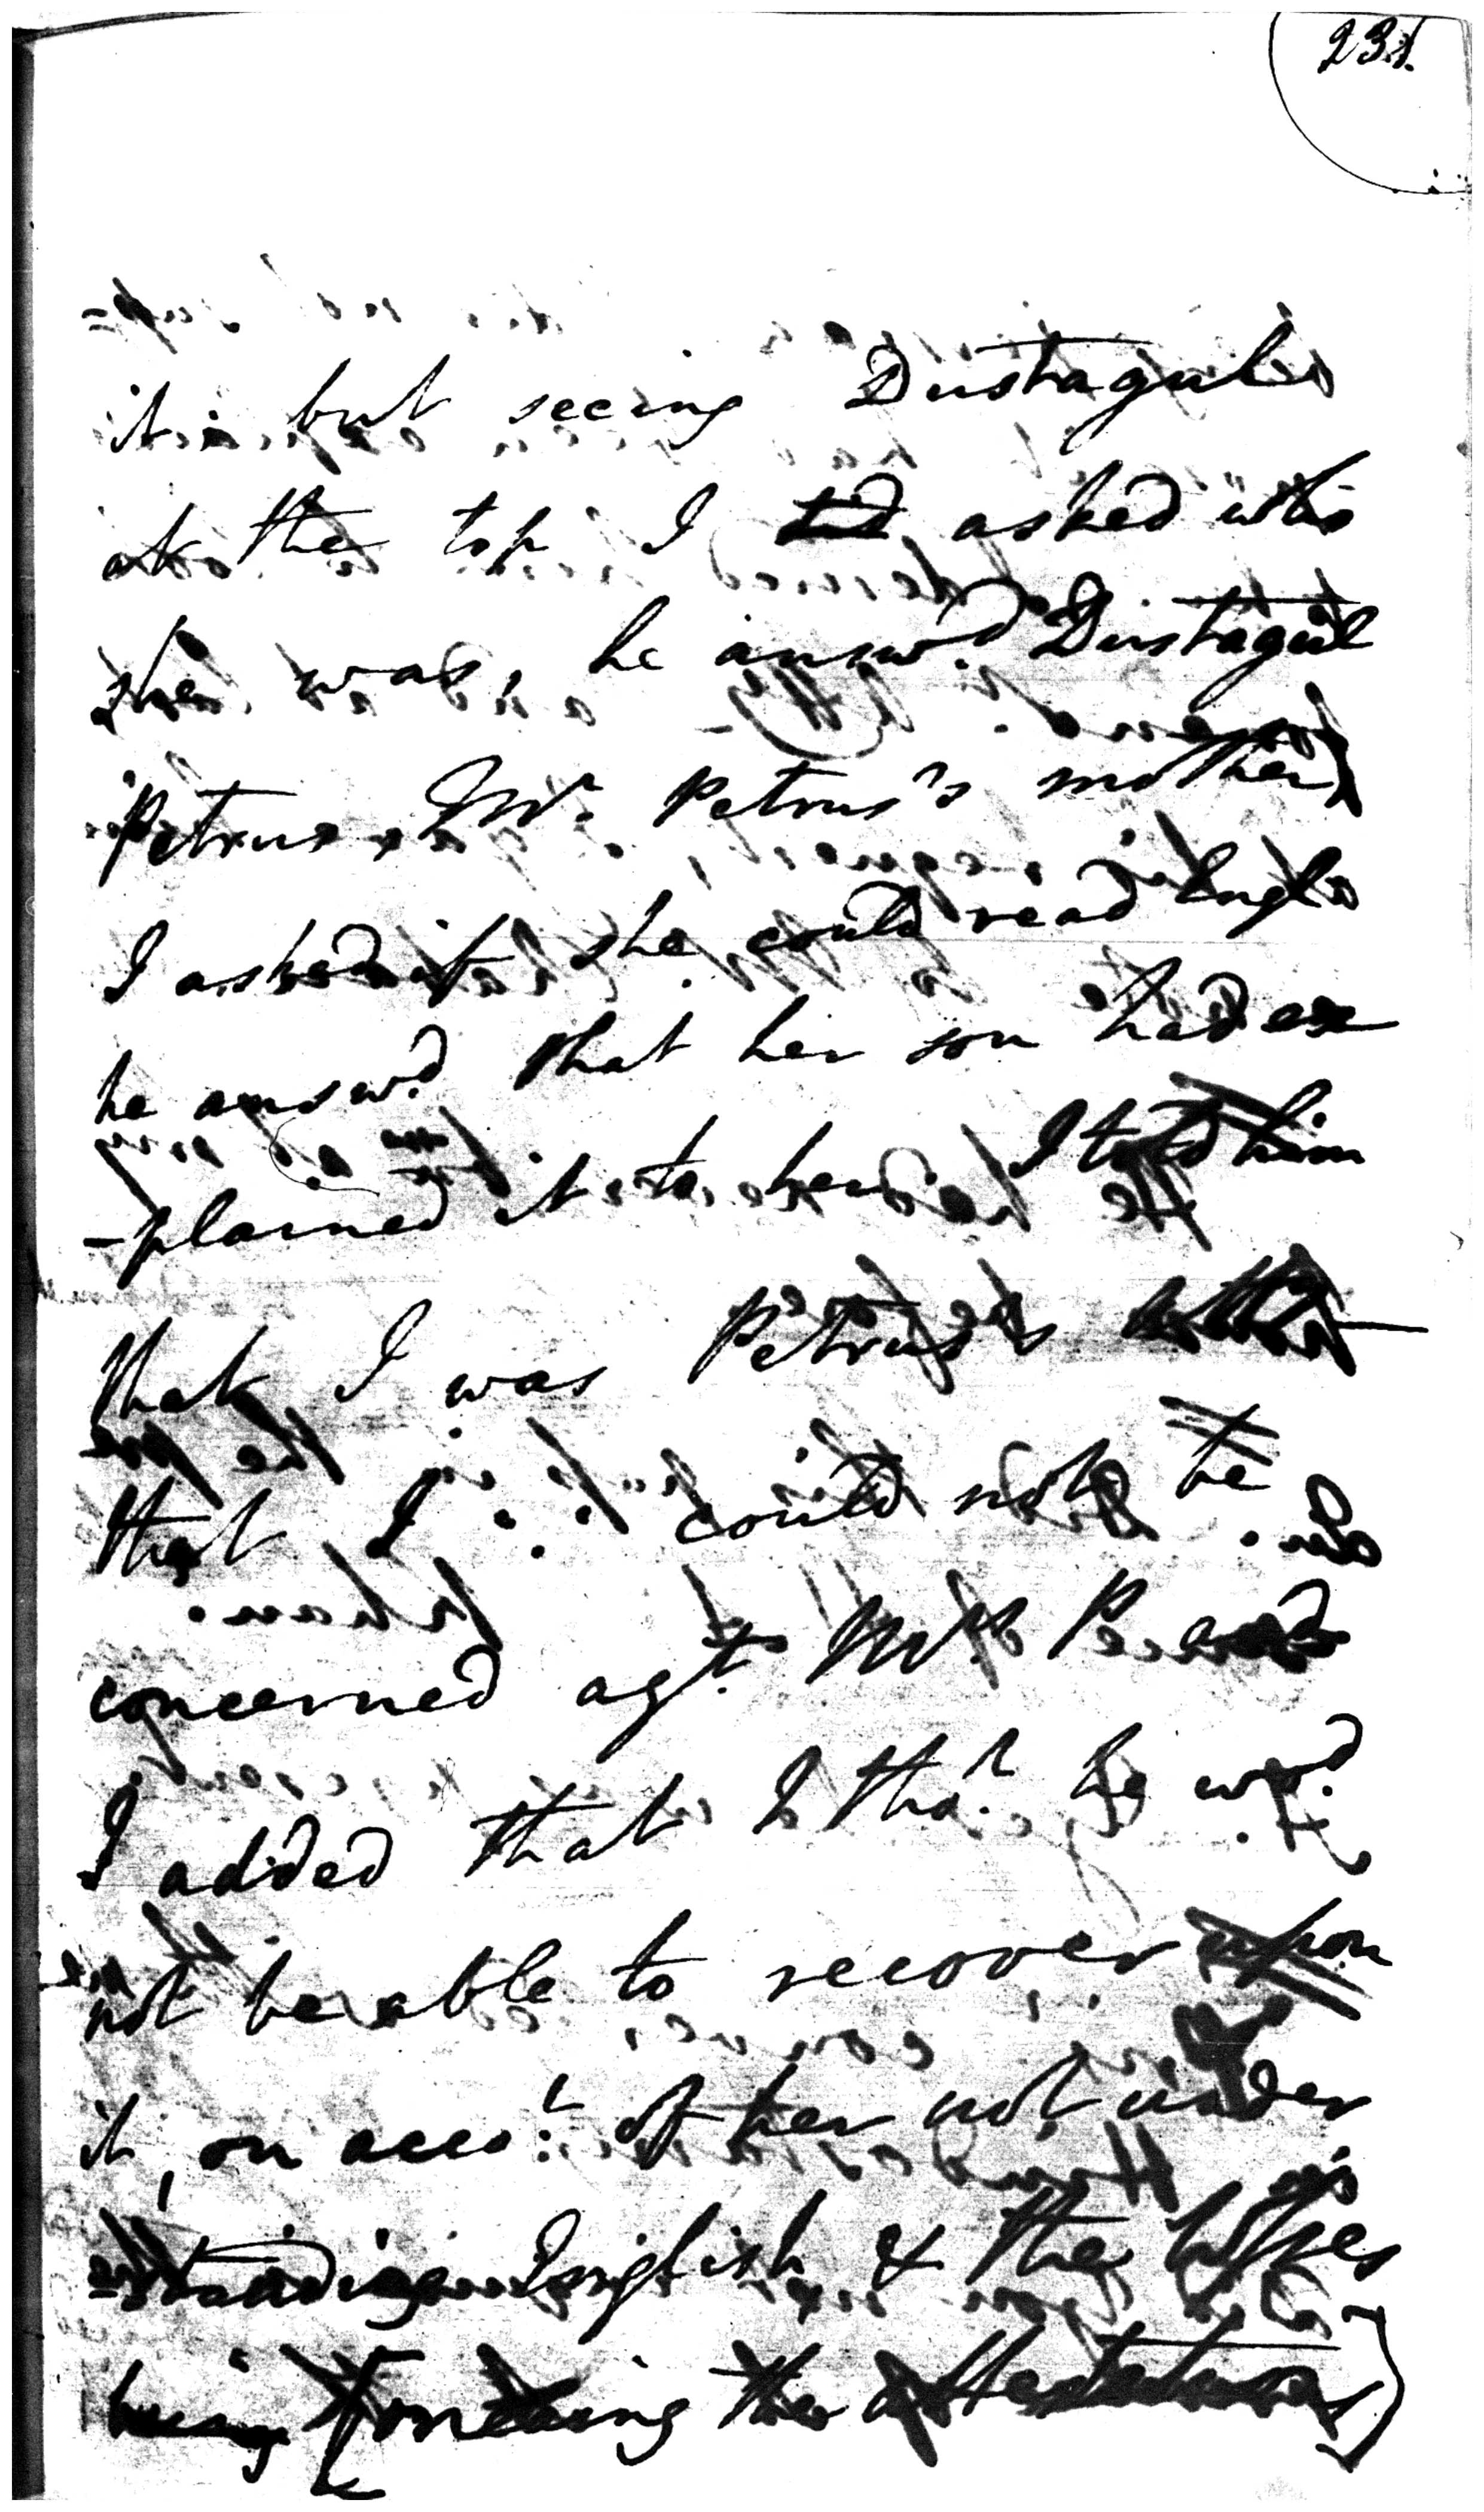 231.
it but seeing Dustagul
at the top I told asked who
she was, he answd. Dustagul
Petruse, Mr. Petrus's mother
I asked if she could read Engl
he answd. that her son had ex
-plained it to her. I told him
that I was Petrus's
that I could not be
concerned agt. Mr. P. and
I added that I thot. he wod.
not be able to recover upon
it, on accot. of her not under
-standing English & the
being the